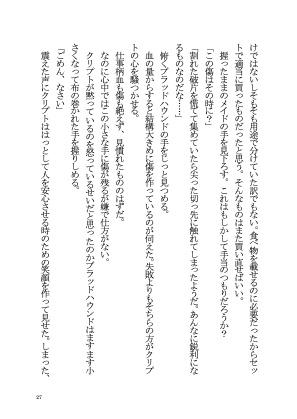 けではないしそもそも用途で分けていた訳でもない。食べ物を載せるのに必要だったからセッ
トで適当に買ったものだったと思う。そんなものはまた買い直せばいい。
握ったままのメイドの手を見下ろす。これはもしかして手当のつもりだろうか？
「この傷はその時に？」
「割れた破片を慌てて集めていたら尖った切っ先に触れてしまったようだ。あんなに鋭利にな
るものなのだな……」
俯くブラッドハウンドの手をじっと見つめる。
血の量からすると結構大きめに傷を作っているのが伺えた。失敗よりもそちらの方がクリプ
トの心を騒つかせる。
仕事柄血も傷も絶えず、見慣れたもののはずだ。
なのに心中ではこの小さな手に傷が残るが嫌で仕方がない。
クリプトが黙っているのを怒っているせいだと思ったのかブラッドハウンドはますます小
さくなって布の巻かれた手を握りしめる。
「ごめん、なさい」
震えた声にクリプトははっとして人を安心させる時のための笑顔を作って見せた。しまった、
27